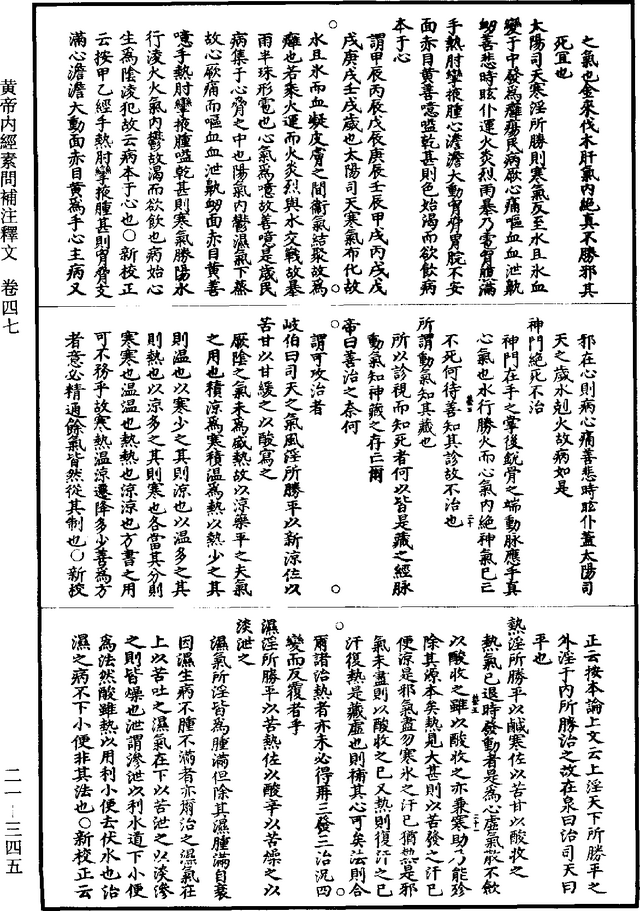 黄帝内經素問補注釋文　卷四七
二一—三四五
之氣也金來伐木肝氣内絶真不勝邪其
死宜也
太陽司天寒淫所勝則寒氣反至水且氷血
變于中發爲癰瘍民病厥心痛嘔血血泄鼽
衂善悲時眩仆運火炎烈雨暴乃雹胷腹滿
手熱肘攣掖腫心澹澹大動胷脅胃脘不安
面赤目黄善噫嗌乾甚則色炲渴而欲飲病
本于心
謂甲辰丙辰戊辰庚辰壬辰甲戌丙戌戊
戌庚戌壬戌歲也太陽司天寒氣布化故
水且氷而血凝皮膚之間衞氣結聚故爲
癰也若乘火運而火炎烈與水交戰故暴
雨半珠形雹也心氣爲噫故善噫是歲民
病集于心脅之中也陽氣内鬱濕氣下蒸
故心厥痛而嘔血血泄鼽衂面赤目黄善
噫手熱肘攣掖腫嗌乾甚則寒氣勝陽水
行凌火火氣内鬱故渴而欲飲也病始心
生爲陰淩犯故云病本于心也○新校正
云按甲乙經手熱肘攣掖腫甚則胷脅支
滿心澹澹大動面赤目黄爲手心主病又
邪在心則病心痛善悲時眩仆蓋太陽司
天之歲水剋火故病如是
神門絶死不治
神門在手之掌後鋭骨之端動脉應手真
心氣也水行勝火而心氣内絶神氣已亡
不死何待善知其診故不治也
所謂動氣知其藏也
所以診視而知死者何以皆是藏之經脉
動氣知神藏之存亡爾
帝曰善治之奈何
謂可攻治者
岐伯曰司天之氣風淫所勝平以新涼佐以
苦甘以甘緩之以酸寫之
厥陰之氣未爲盛熱故以涼藥平之夫氣
之用也積涼爲寒積温爲熱以熱少之其
則温也以寒少之其則涼也以温多之其
則熱也以涼多之其則寒也各當其分則
寒寒也温温也熱熱也涼涼也方書之用
可不務乎故寒熱温涼遷降多少善爲方
者意必精通餘氣皆然從其制也○新校
正云按本論上文云上淫天下所勝平之
外淫于内所勝治之故在泉曰治司天曰
平也
熱淫所勝平以鹹寒佐以苦甘以酸收之
熱氣已退時發動者是爲心虚氣散不歛
以酸收之雖以酸收之亦兼寒助乃能殄
除其源本矣熱見大甚則以苦發之汗已
便涼是邪氣盡勿寒水之汗已猶熱是邪
氣未盡則以酸收之已又熱則復汗之已
汗復熱是藏虚也則補其心可矣法則合
爾諸治熱者亦未必得再三發三治況四
變而反覆者乎
濕淫所勝平以苦熱佐以酸辛以苦燥之以
淡泄之
濕氣所淫皆爲腫滿但除其濕腫滿自衰
因濕生病不腫不滿者亦爾治之濕氣在
上以苦吐之濕氣在下以苦泄之以淡滲
之則皆燥也泄謂滲泄以利水道下小便
爲法然酸雖熱以用利小便去伏水也治
濕之病不下小便非其法也○新校正云